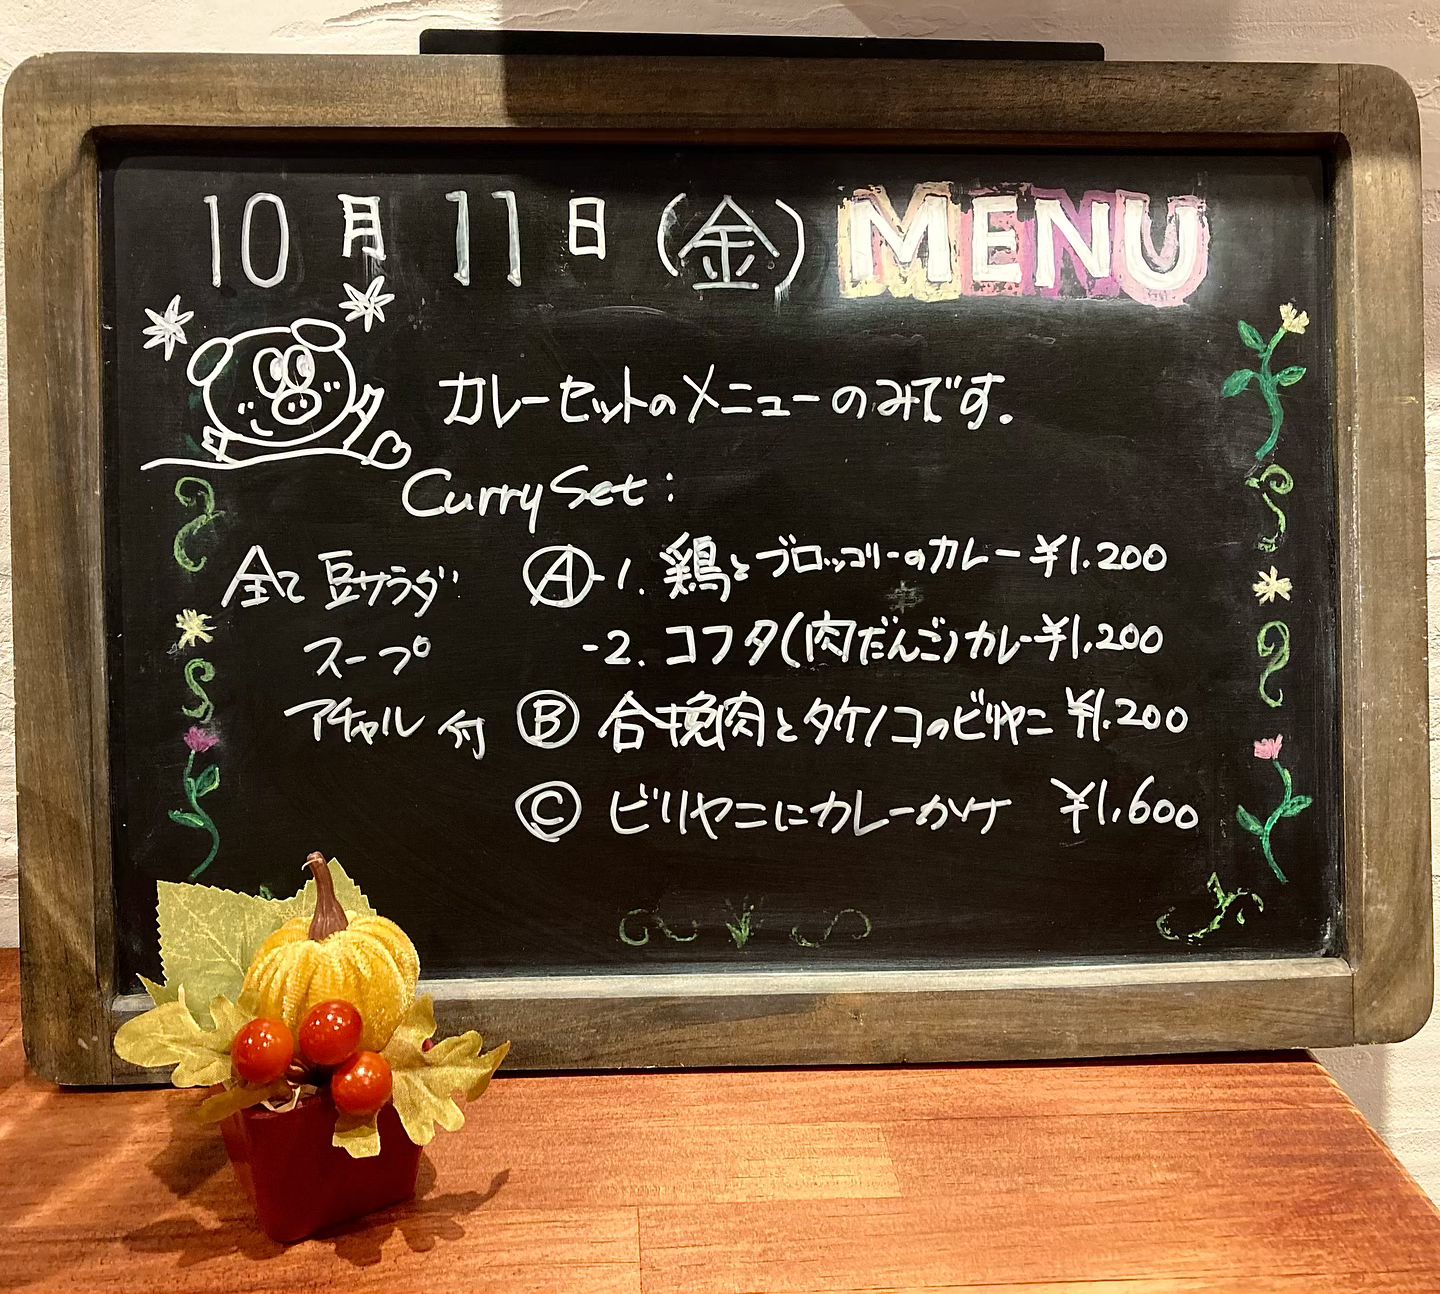 10月11日(金) MENU
カレーセットのメニューのみです。
Curry Set:
全て 豆サラダ
スープ
アチャル 付
Ⓐ-1. 鶏とブロッコリーのカレー ¥1.200
-2. コフタ(肉だんご)カレー ¥1.200
Ⓑ 合挽肉とタケノコのビリヤニ ¥1.200
Ⓒ ビリヤニにカレーかけ ¥1.600